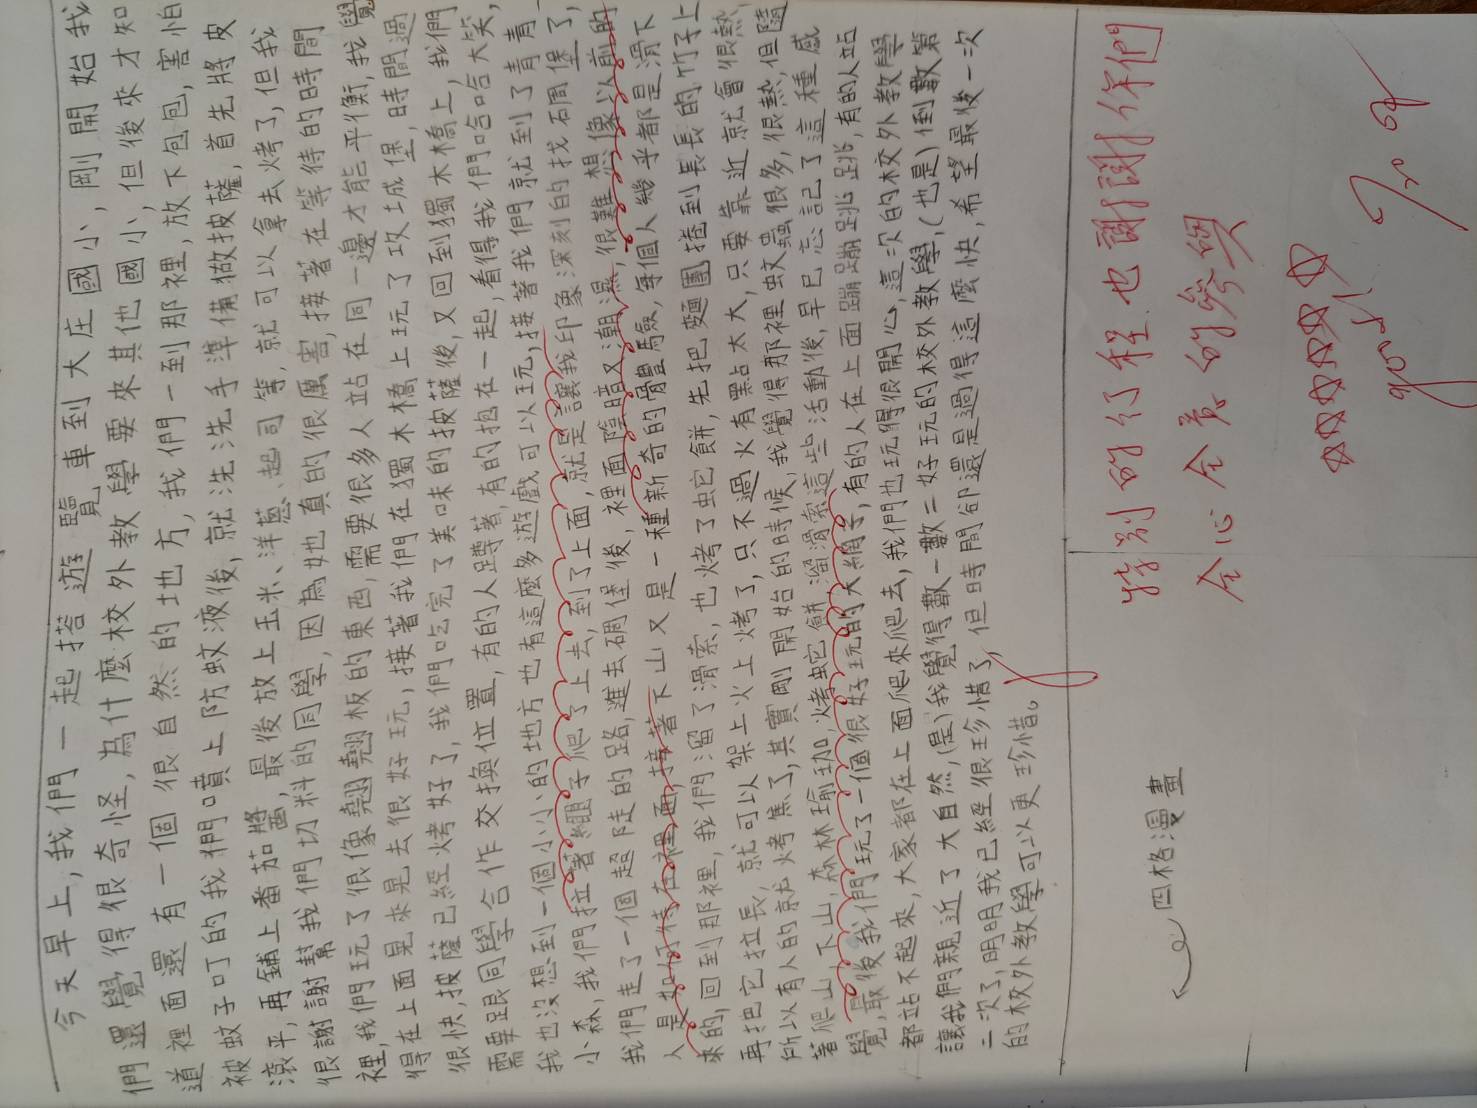 今天早上,我們一起搭遊覽車到大庄國小,剛開始我
們還覺得很奇怪,為什麼校外教學要來其他國小,但後來才知
道裡面還有一個很自然的地方,我們一到那裡,放下包包,害怕
被蚊子叮的我們噴上防蚊液後,就洗洗手準備做披薩,首先將皮
滾平,再鋪上番茄醬,最後放上玉米、洋蔥、起司等,就可以拿去烤了,但我
很謝謝幫我們切料的同學,因為她真的很厲害,接著在等待的時間
裡,我們玩了很像翹翹板的東西,需要很多人站在同一邊才能平衡,我覺
得在上面晃來晃去很好玩,接著我們在獨木橋上玩了攻城堡,時間過
很快,披薩已經烤好了,我們吃完了美味的披薩後,又回到獨木橋上,我們
需要跟同學合作交換位置,有的人蹲著,有的抱在一起,看得我們哈哈大笑,
我也沒想到一個小小的地方也有這麼多遊戲可以玩,接著我們就到了青青
小森,我們拉著繩子爬了上去,到了上面,就是讓我印象深刻的找碉堡了,
我們走了一個超陡的路,進去碉堡後,裡面陰暗又潮濕,很難想像以前的
人是如何待在裡面,接著下山又是一種新奇的體驗,每個人幾乎都是滑下
來的,回到那裡,我們溜了滑索,也烤了蛇餅,先把麵團捲到長長的竹子上
再把它拉長,就可以架上火上烤了,只不過火有點太大,只要靠近就會很熱,
所以有人的就烤焦了,其實剛開始的時候,我覺得那裡蚊蟲很多,很熱,但隨
著爬山、下山,烤蛇餅溜滑索這些活動後,早已忘記了這種感
覺,最後我們玩了一個很好玩的大網子,有的人在上面蹦蹦跳跳,有的人站
都站不起來,大家都在上面爬來爬去,我們也玩得很開心,這次的校外教學
讓我們親近了大自然,(是)我覺得數一數二好玩的校外教學,(也是)倒數第
二次了,明明我已經很珍惜了,但時間卻還是過得這麼快,希望最後一次
的校外教學可以更珍惜。
四格漫畫
特別的行程.也謝謝你們
全心全意的參與